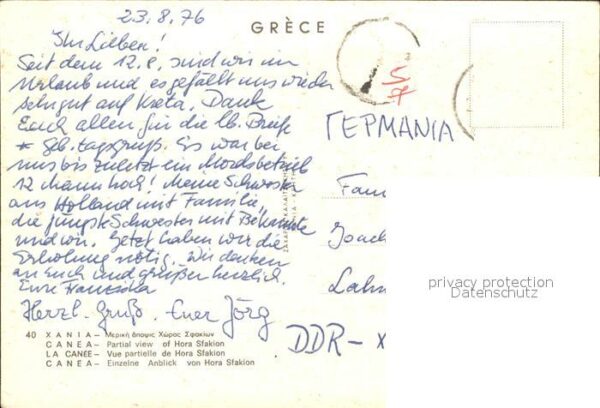 23.8.76
GRÈCE
Ihr Lieben!
Seit dem 12.8. sind wir im
Urlaub und es gefällt uns wieder
sehr gut auf Kreta. Dank
Euch allen für die lb. Briefe
+ Geb.tagsgruß. Es war bei
uns bis zuletzt ein Mordsbetrieb
12 Mann hoch! Meine Schwester
aus Holland mit Familie,
die jüngste Schwester mit Bekannte
und wir. Jetzt haben wir die
Erholung nötig. Wir denken
an Euch und grüßen herzlich.
Eure Franziska
Herzl. Gruß. Euer Jörg
ΓΕΡΜΑΝIA
Fam
Joach
Lahn
DDR-X
privacy protection
Datenschutz
40 ΧΑΝΙΑ – Μερική άποψις Χώρας Σφακίων
CANEA – Partial view of Hora Sfakion
LA CANEE – Vue partielle de Hora Sfakion
CANEA – Einzelne Anblick von Hora Sfakion